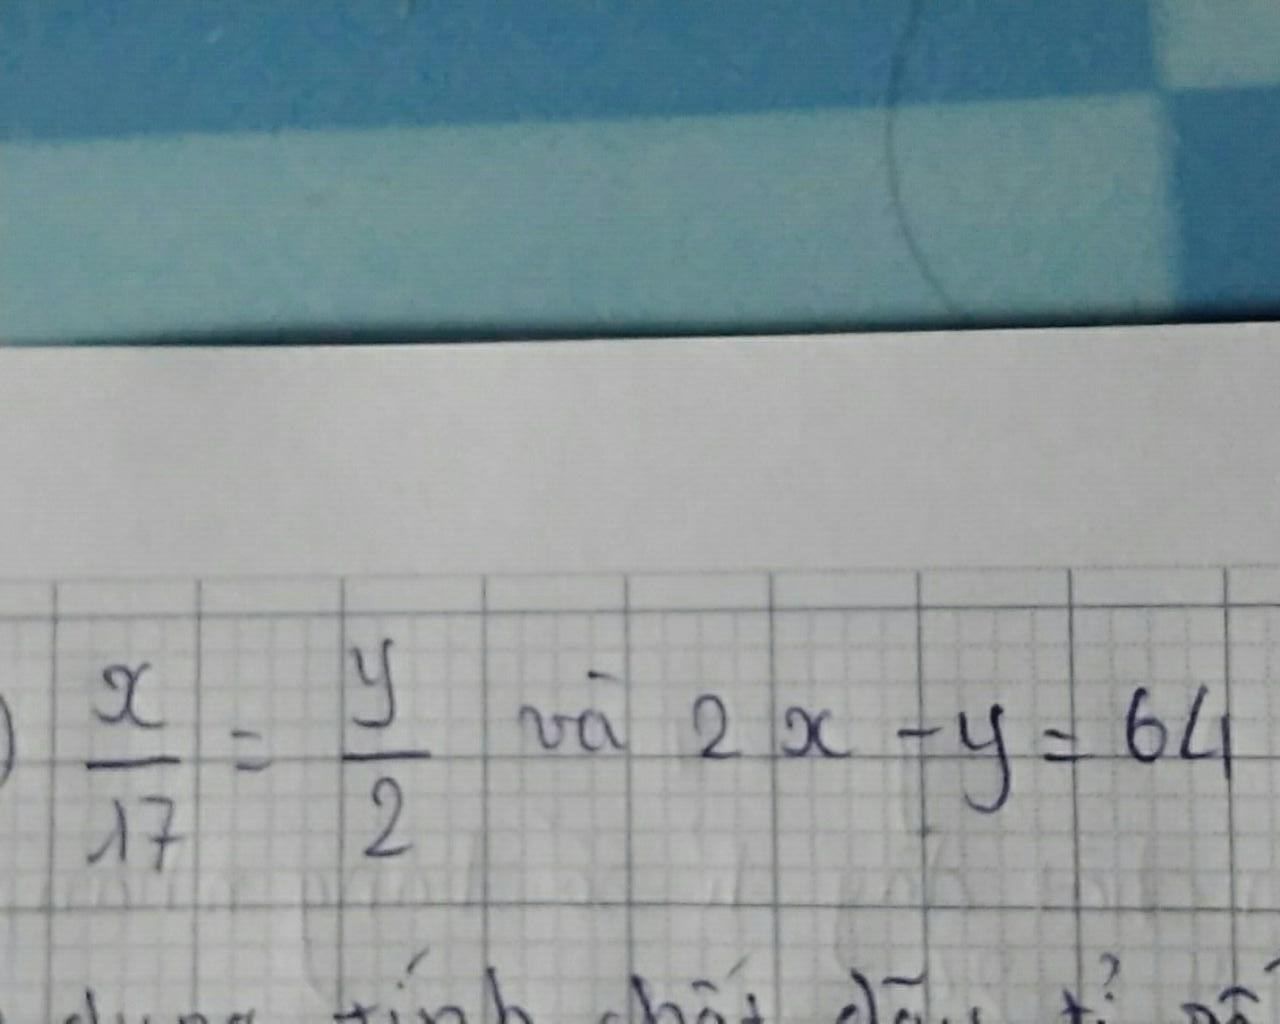 ) x/17 = y/2 và 2x - y = 64
dụng tính chất dãy tỉ số